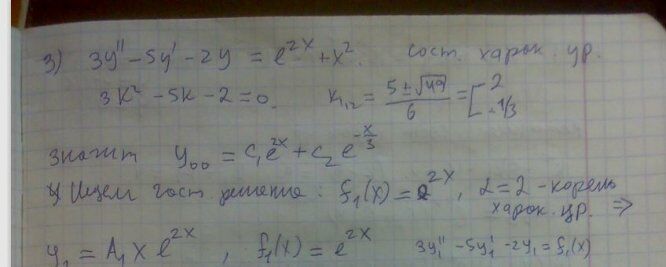 3) 3y'' - 5y' - 2y = e^{2x} + x^2. сост. харак. ур.
3k^2 - 5k - 2 = 0. k_{1,2} = \frac{5 ± √49}{6} = [ 2 -1/3
значит y_{00} = c_1 e^{2x} + c_2 e^{-\frac{x}{3}}
Ищем част. решение: f_1(x) = e^{2x}, α = 2 - корень
харак. ур. ⇒
y_1 = A_1 x e^{2x}, f_1(x) = e^{2x} 3y_1'' - 5y_1' - 2y_1 = f_1(x)